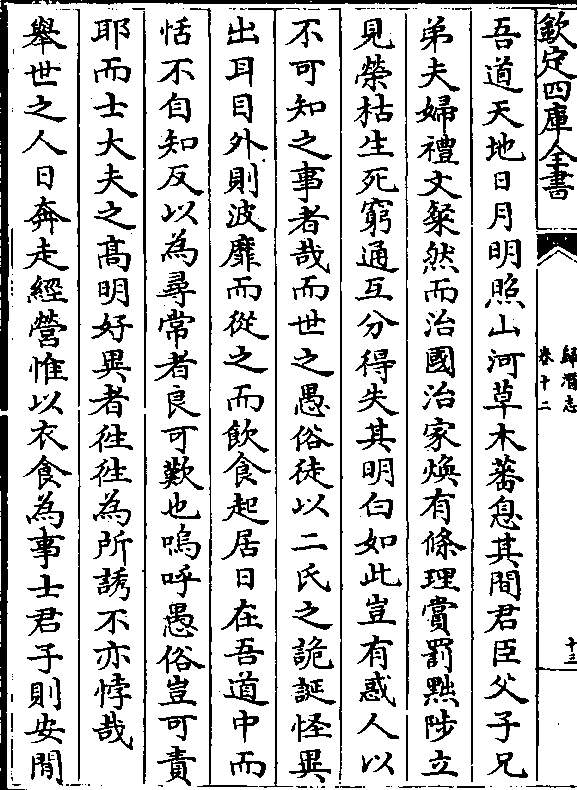 欽定四庫全書
歸潛志
卷十二
十三
吾道天地日月明照山河草木蕃息其間君臣父子兄
弟夫婦禮文粲然而治國治家煥有條理賞罰黜陟立
見榮枯生死窮通互分得失其明白如此豈有惑人以
不可知之事者哉而世之愚俗徒以二氏之詭誕怪異
出耳目外則波靡而從之而飲食起居日在吾道中而
恬不自知反以為尋常者良可歎也嗚呼愚俗豈可責
耶而士大夫之髙明好異者徃徃為所誘不亦悖哉
舉世之人日奔走經營惟以衣食為事士君子則安閒